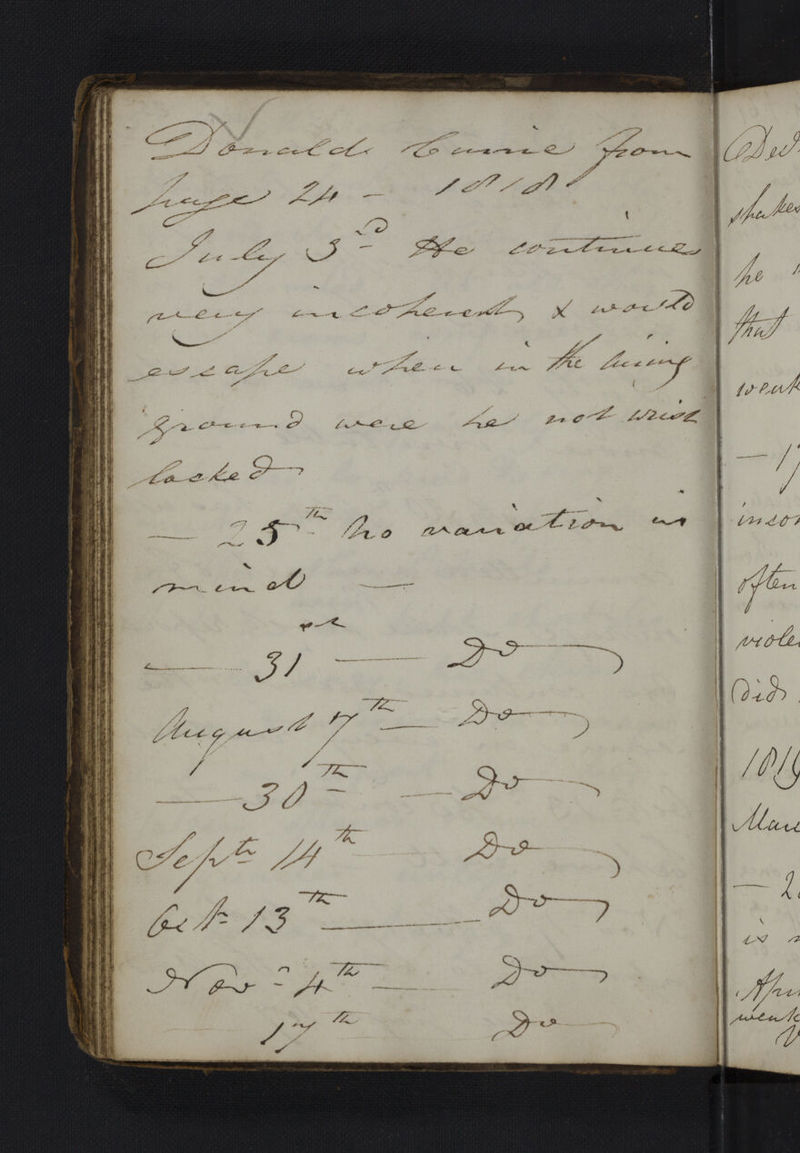 Donald Currie from
page 24 - 1818
July 3rd He continues
very incoherent & would
escape when in the airing
ground were he not wrist
locked
— 25th No variation in
mind —
— 31st — Do
August 7th — Do
— 30th — Do
Septr 14th — Do
Octr 13th — Do
Novr 4th — Do
17th Do
he
that
weak
often
did
1819
is
weak